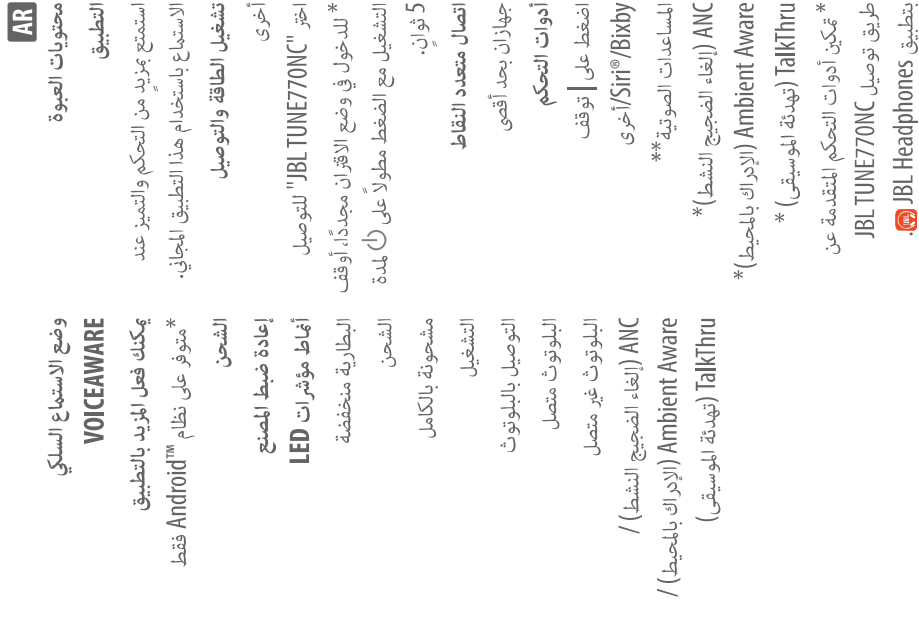 AR
محتويات العبوة
التطبيق
استمتع بمزيد من التحكم والتميز عند
الاستماع باستخدام هذا التطبيق المجاني.
تشغيل الطاقة والتوصيل
أخرى
اختر "JBL TUNE770NC" للتوصيل
* للدخول في وضع الاقتران مجددًا، أوقف
التشغيل مع الضغط مطولاً على لمدة
5 ثوانٍ.
اتصال متعدد النقاط
جهازان بحد أقصى
أدوات التحكم
اضغط على | توقف
أخرى/Siri®/Bixby
المساعدات الصوتية**
ANC (إلغاء الضجيج النشط)*
Ambient Aware (الإدراك بالمحيط)*
TalkThru (تهدئة الموسيقى) *
* تمكين أدوات التحكم المتقدمة عن
طريق توصيل JBL TUNE770NC
بتطبيق JBL Headphones.
وضع الاستماع السلكي
VOICEAWARE
يمكنك فعل المزيد بالتطبيق
*متوفر على نظام Android™ فقط
الشحن
إعادة ضبط المصنع
أنماط مؤشرات LED
البطارية منخفضة
الشحن
مشحونة بالكامل
التشغيل
التوصيل بالبلوتوث
البلوتوث متصل
البلوتوث غير متصل
ANC (إلغاء الضجيج النشط) /
Ambient Aware (الإدراك بالمحيط) /
TalkThru (تهدئة الموسيقى)